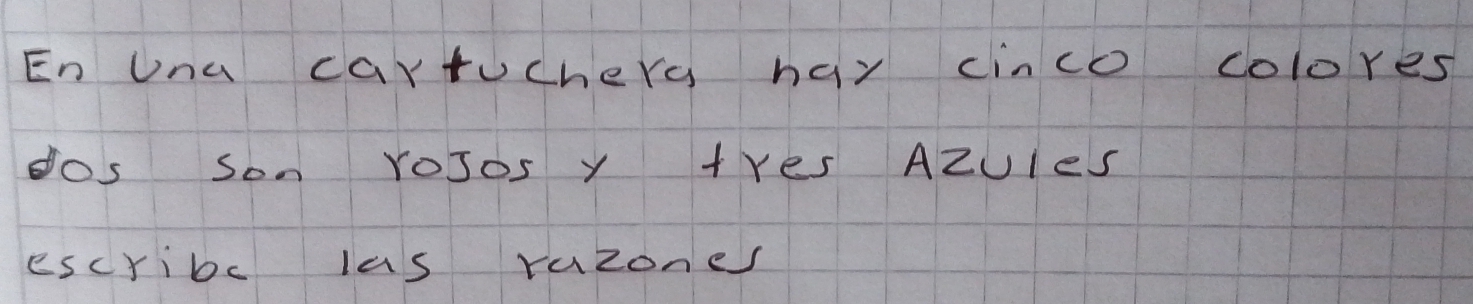 En una cartuchera hay cinco colores
dos son rojos y tres Azules
escribe las razones